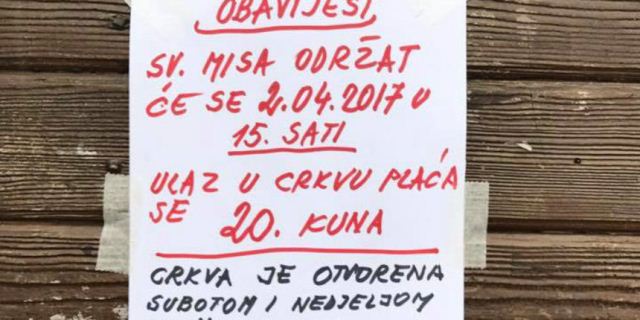 OBAVIJEST
SV. MISA ODRŽAT
ĆE SE 2.04.2017 U
15. SATI
ULAZ U CRKVU PLAĆA
SE 20. KUNA
CRKVA JE OTVORENA
SUBOTOM I NEDJELJOM